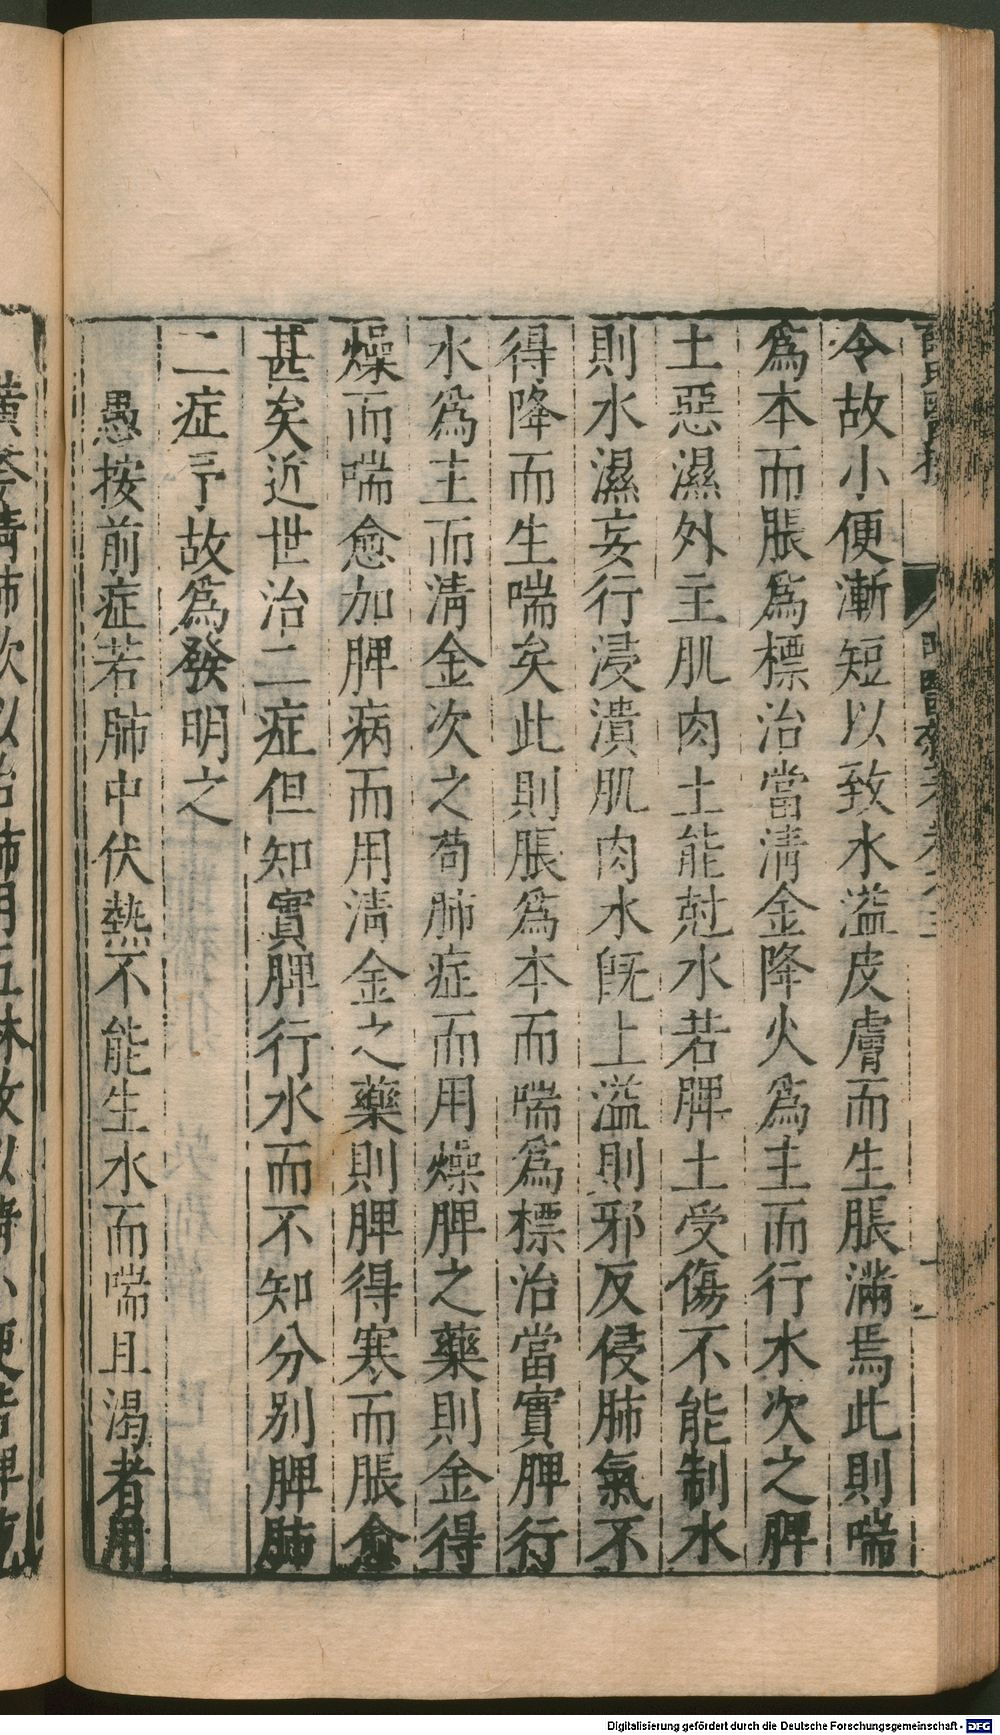 令故小便漸短以致水溢皮膚而生脹滿焉此則喘
爲本而脹爲標治當淸金降火爲主而行水次之脾
土惡濕外主肌肉土能尅水若脾土受傷不能制水
則水濕妄行浸潰肌肉水旣上溢則邪反侵肺氣不
得降而生喘矣此則脹爲本而喘爲標治當實脾行
水爲主而淸金次之苟肺症而用燥脾之藥則金得
燥而喘愈加脾病而用淸金之藥則脾得寒而脹愈
甚矣近世治二症但知實脾行水而不知分別脾肺
二症予故爲發明之
愚按前症若肺中伏熱不能生水而喘且渴者用
Digitalisierung gefördert durch die Deutsche Forschungsgemeinschaft - DFG